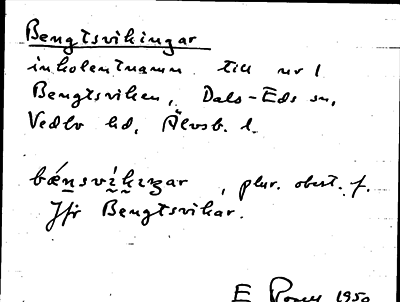 Bengtsvikingar
inkolentnamn till nr 1
Bengtsviken, Dals-Eds sn,
Vedbo hd, Älvsb. l.
bǽnsvíkiŋar, plur. obest. f.
Jfr Bengtsvikar.
E 1950